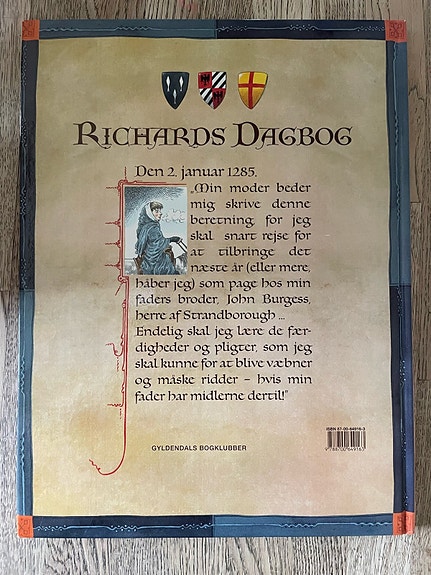 RICHARDS DAGBOG
Den 2. januar 1285.
„Min moder beder
mig skrive denne
beretning for jeg
skal snart rejse for
at tilbringe det
næste år (eller mere,
håber jeg) som page hos min
faders broder, John Burgess,
herre af Strandborough ...
Endelig skal jeg lære de fær-
digheder og pligter, som jeg
skal kunne for at blive væbner
og måske ridder – hvis min
fader har midlerne dertil!"
ISBN 87-00-64916-3
GYLDENDALS BOGKLUBBER
9 788700 649163